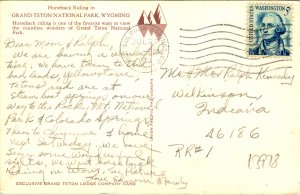 Horseback Riding in
GRAND TETON NATIONAL PARK, WYOMING
Horseback riding is one of the favorite ways to view
the countless wonders of Grand Teton National
Park.
Dear Mom & Ralph,
We are having a
time. We have been to the
bad lands, Yellowstone,
Tetons and are at
Steamboat Springs on our
way to the Park, Nat.
Park & Colorado Springs.
Then to Cheyenne & home
next Saturday. We have
Seen some wonderful
sights. We went horseback
riding
Love
& family
Mr & Mrs Ralph Kennedy
Wilkinson
Indiana
46186
RR#1
13978
EXCLUSIVE GRAND TETON LODGE COMPANY CARD
WASHINGTON
5¢